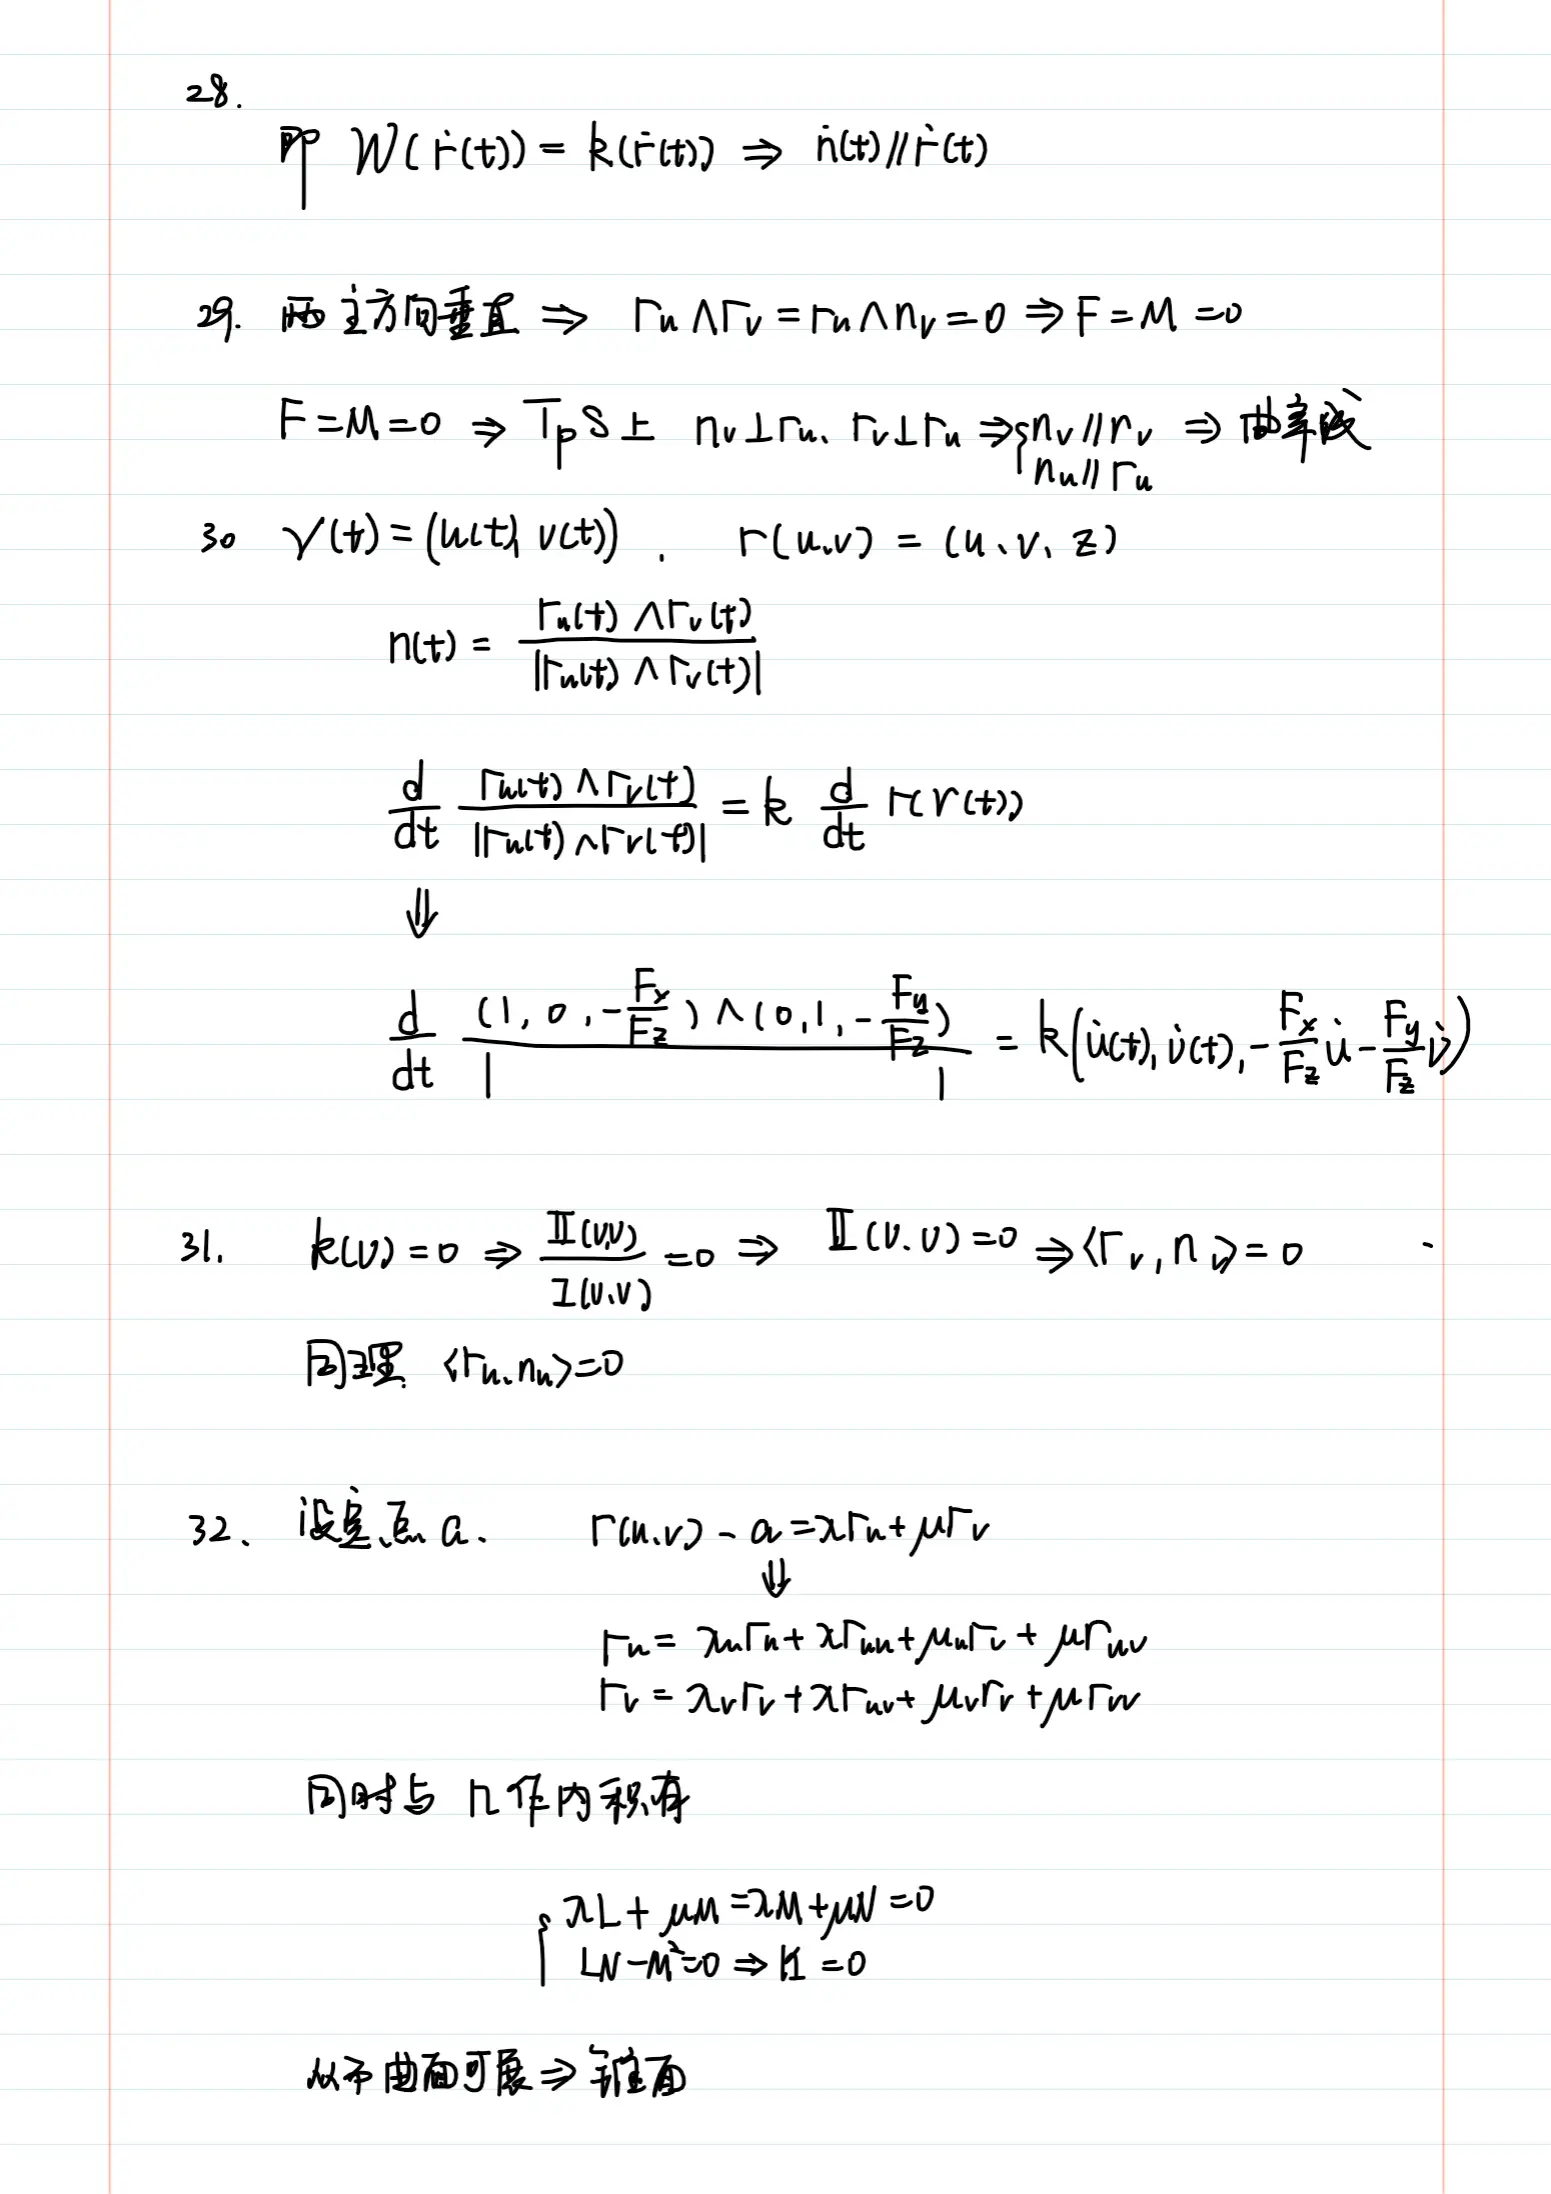 28.
即 W(ṙ(t)) = k(ṙ(t)) ⇒ ṅ(t) // ṙ(t)
29. 两主方向垂直 ⇒ r_u ∧ r_v = r_u ∧ n_v = 0 ⇒ F = M = 0
F = M = 0 ⇒ T_pS上 n_v ⊥ r_u、r_v ⊥ r_u ⇒ { n_v // r_v ⇒ 曲率线
n_u // r_u
30 γ(t) = (u(t), v(t)). r(u,v) = (u、v、z)
n(t) = \frac{r_u(t) ∧ r_v(t)}{|r_u(t) ∧ r_v(t)|}
\frac{d}{dt} \frac{r_u(t) ∧ r_v(t)}{|r_u(t) ∧ r_v(t)|} = k \frac{d}{dt} r(γ(t))
⇓
\frac{d}{dt} \frac{(1, 0, -\frac{F_x}{F_z}) ∧ (0, 1, -\frac{F_y}{F_z})}{| |} = k(u̇(t), v̇(t), -\frac{F_x}{F_z}u̇ - \frac{F_y}{F_z}v̇)
31. k(v) = 0 ⇒ \frac{II(v,v)}{I(v,v)} = 0 ⇒ II(v.v) = 0 ⇒ <r_v, n_v> = 0
同理. <r_u, n_u> = 0
32. 设定点 a. r(u.v) - a = λr_u + μr_v
⇓
r_u = λ_u r_u + λr_uu + μ_u r_v + μr_uv
r_v = λ_v r_v + λr_uv + μ_v r_v + μr_vv
同时与 n 作内积有
{ λL + μM = λM + μN = 0
LN - M² = 0 ⇒ K = 0
从而曲面可展 ⇒ 锥面